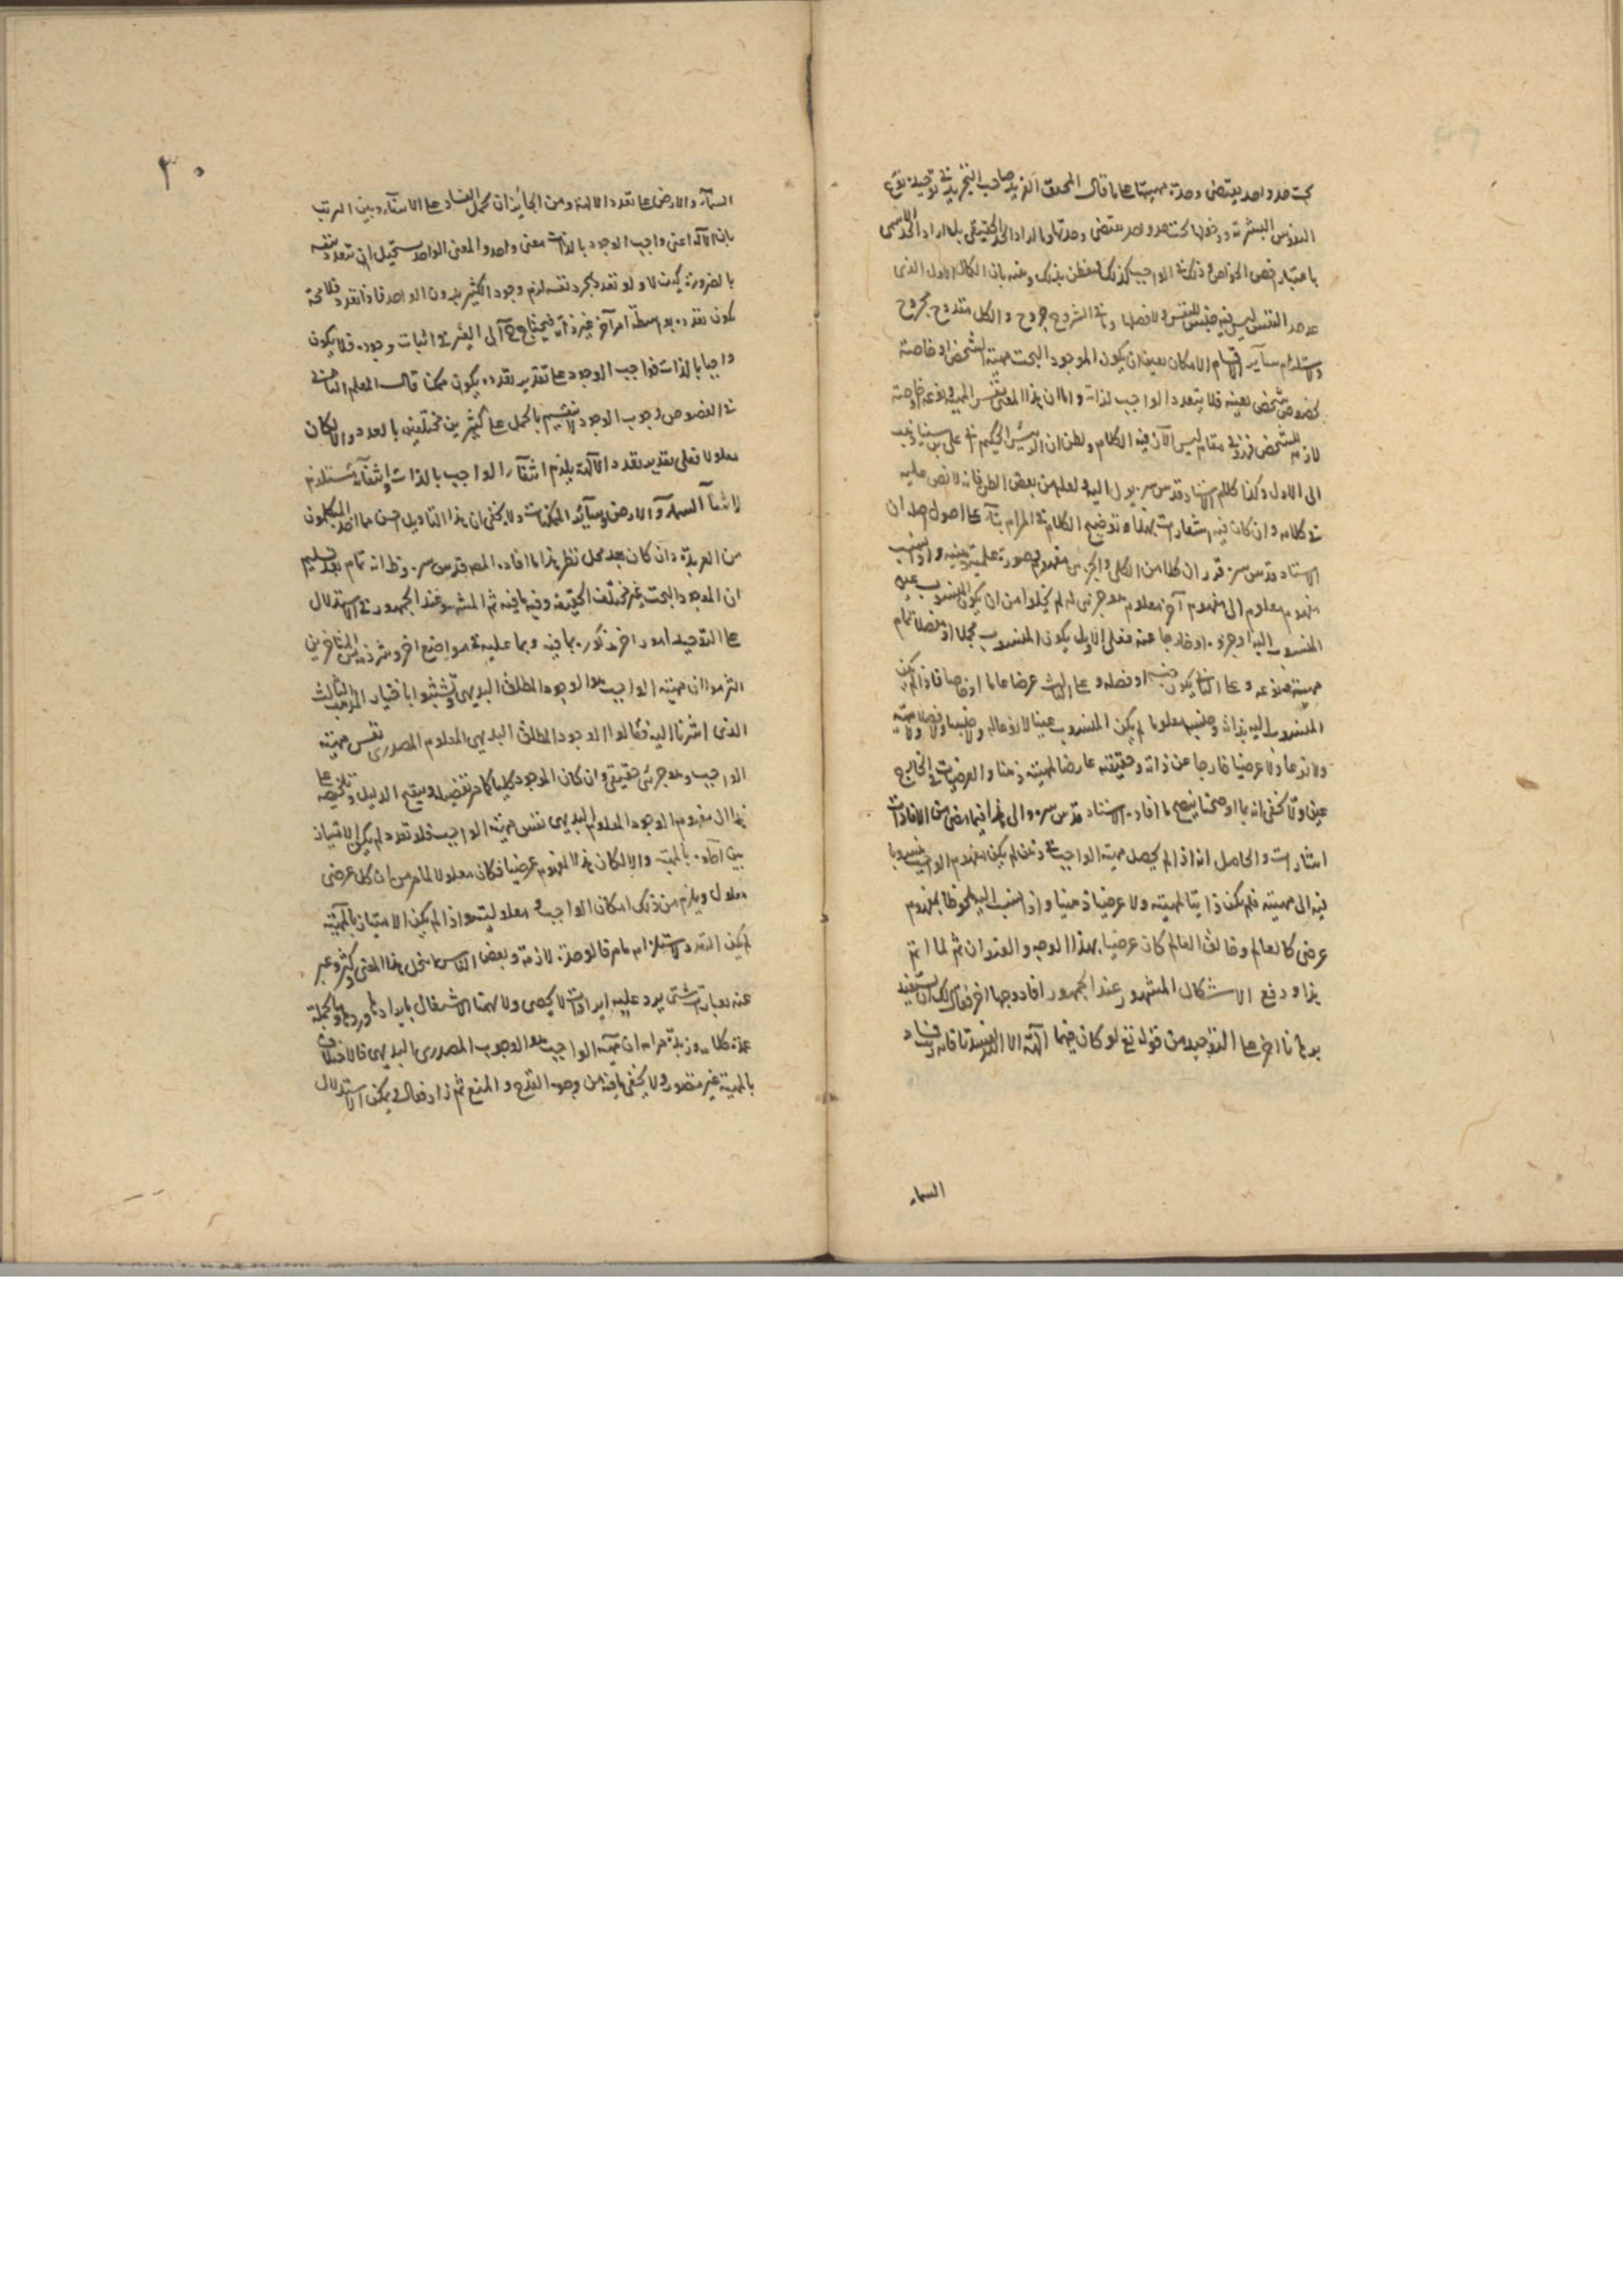 تحت حد واحد يقتضى وحدة مهيتها على ما قال المحقق صاحب التجريد فى توحيد نوع
النفوس البشرية ودخولها تحت حد واحد يقتضى وحدتها وما اراد الحد الحقيقى بل اراد الحد الاسمى
باعتبار اخص الخواص ذلك فى الواجب كذلك
حد النفس ليس فيه جنس للنفس ولا فصلها وفى الشروح جروح والكل مقدوح مجروح
ولاستلزام سآير اقسام الامكان تعين ان يكون الموجود البحت مهية لشخص او خاصته
بخصوص شخص بعينه فلا يتعدد الواجب لذاته واما ان هذا المعنى نفس المهية
لازم للشخص مقام ليس الآن فيه الكلام وظن ان الرئيس الحكيم على بن سينا ذهب
الى الاول وكذا كلام الاستاد قدس سره يول اليه ولعله من بعض الظن فانه لا نص عليه
فى كلامه وان كان فيه اشعارات بهذا وتوضيح الكلام فى المرام بنآء على اصول
الاستاد قدس سره قرر ان كلا من الكلى والجزئى مفهوم وصورة علمية
مفهوم معلوم الى مفهوم آخر معلوم هو جزئى له لم يخلوا من ان يكون المنسوب عين
المنسوب اليه او جزءه او خارجا عنه فعلى الاول يكون المنسوب مجملا او مفصلا تمام
مهيته ونوعه وعلى الثانى يكون جنسه او فصله وعلى الثالث عرضا عاما او خاصا فاذا لم يكن
المنسوب اليه بذاته وجنسه معلوما لم يكن المنسوب عينا لا نوعا له ولا جنسا ولا فصلا
ولا نوعا ولا عرضيا خارجا عن ذاته وحقيقته عارضا لمهيته ذهنا والعرضيات فى الخارج
عين ولا تخفى انه بما اوضحنا يتضح ما افاده الاستاد قدس سره والى هذا فيما مضى من الافادات
اشارات والحاصل انه اذا لم يحصل مهية الواجب فى ذهن لم يكن مفهوم الواجب منسوبا
فيه الى مهيته فلم يكن ذاتيا لمهيته ولا عرضيا ذهنيا واذا نسب اليه ملحوظا بمفهوم
عرضى كالعالم وخالق العالم كان عرضيا بهذا الوجه والعنوان ثم لما اتم
هذا ودفع الاشكال المشهور عند الجمهور افاد وجها آخر فقال لك ان تستفيد
برهانا آخر على التوحيد من قوله تع لو كان فيهما آلهة الا الله لفسدتا فان فساد
السماء
٣٠
السمآء والارض على تعدد الالهة ومن الجائز ان يحمل الفساد على الانتفآء وبين الترتب
بان الاله اعنى واجب الوجود بالذات معنى واحد والمعنى الواحد يستحيل ان تتعدد بنفسه
بالضرورة كيف لا ولو تعدد بمجرد نفسه لزم وجود الكثير بدون الواحد فاذا تعدد فلا محة
يكون تعدده بواسطة امر آخر غير ذاته فيحتاج الى الغير فى اثبات وجوده فلا يكون
واجبا بالذات فواجب الوجود على تقدير تعدده يكون ممكنا قال المعلم الثانى
فى الفصوص وجوب الوجود لا ينقسم بالحمل على كثيرين مختلفين بالعدد والا لكان
معلولا فعلى تقدير تعدد الآلهة يلزم انتفآء الواجب بالذات وانتفآئه تستلزم
لانتفآء السمآء والارض وسآئر الممكنات ولا يخفى ان هذا التاويل احسن مما اخذه المتكلمون
من العربية وان كان بعد محل نظر هذا ما افاده المصـ قدس سره وظ انه تمام بعد تسليم
ان الموجود البحت غير مختلف الحقيقة وفيه ما فيه ثم المشهور عند الجمهور فى الاستدلال
على التوحيد امور اخر مذكورة بما فيه وبما عليه فى مواضع اخر وشرذمة من المتاخرين
التزموا ان مهية الواجب هو الوجود المطلق البديهى وتشبثوا باختيار المذهب الثالث
الذى اشرنا اليه فقالوا الوجود المطلق البديهى المعلوم المصدرى نفس مهية
الواجب وهو جزئى حقيقى وان كان الموجود كليا كما مر تفصيله ويتم الدليل وتلخيصه على
هذا ان مفهوم الوجود المعلوم البديهى نفس مهية الواجب فلو تعدد لم يكن الامتياز
بين آحاده بالمهية والا لكان هذا المفهوم عرضيا فكان معلولا لما مر من ان كل عرضى
معلول ويلزم من ذلك امكان الواجب ومعلوليته واذا لم يكن الامتياز بالمهية
لم يكن التعدد لاستلزامه ما مر فالوحدة لازمة وبعض الناس انتحل هذا المعنى وكثر وعبر
عنه بعبارات شتى يرد عليه ايرادات لا تحصى ولا يهمنا الاشتغال بايرادها وردها وبالجملة
عمدة كلامه وزبدة مرامه ان مهية الواجب هو الوجوب المصدرى البديهى فالاختلاف
بالمهية غير متصور ولا يخفى ما فيه من وجوه القدح والمنع ثم زاد فقال ويمكن الاستدلال